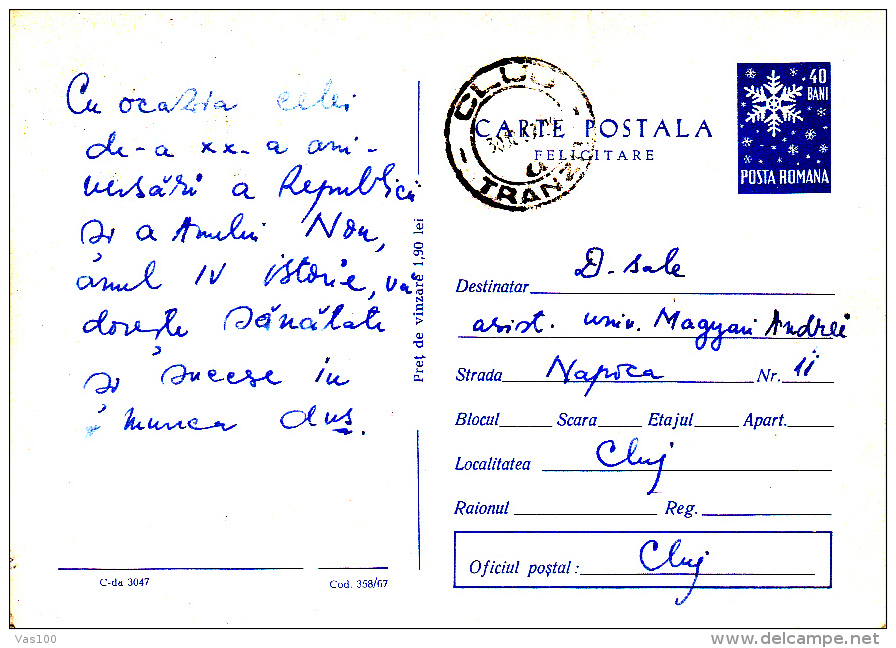 Cu ocazia celei
de-a xx-a ani-
versări a Republicii
și a Anului Nou,
anul IV istorie, va
dorește sănătate
și succese în
munca dvs.
Preț de vînzare 1,90 lei
C-da 3047
Cod. 358/67
CLUJ
TRANZIT
4
CARTE POSTALA
FELICITARE
40
BANI
POSTA ROMANA
Destinatar D-sale
asist. univ. Magyari Andrei
Strada Napoca Nr. 11
Blocul Scara Etajul Apart.
Localitatea Cluj
Raionul Reg.
Oficiul poștal: Cluj
Vas100
delcampe.net